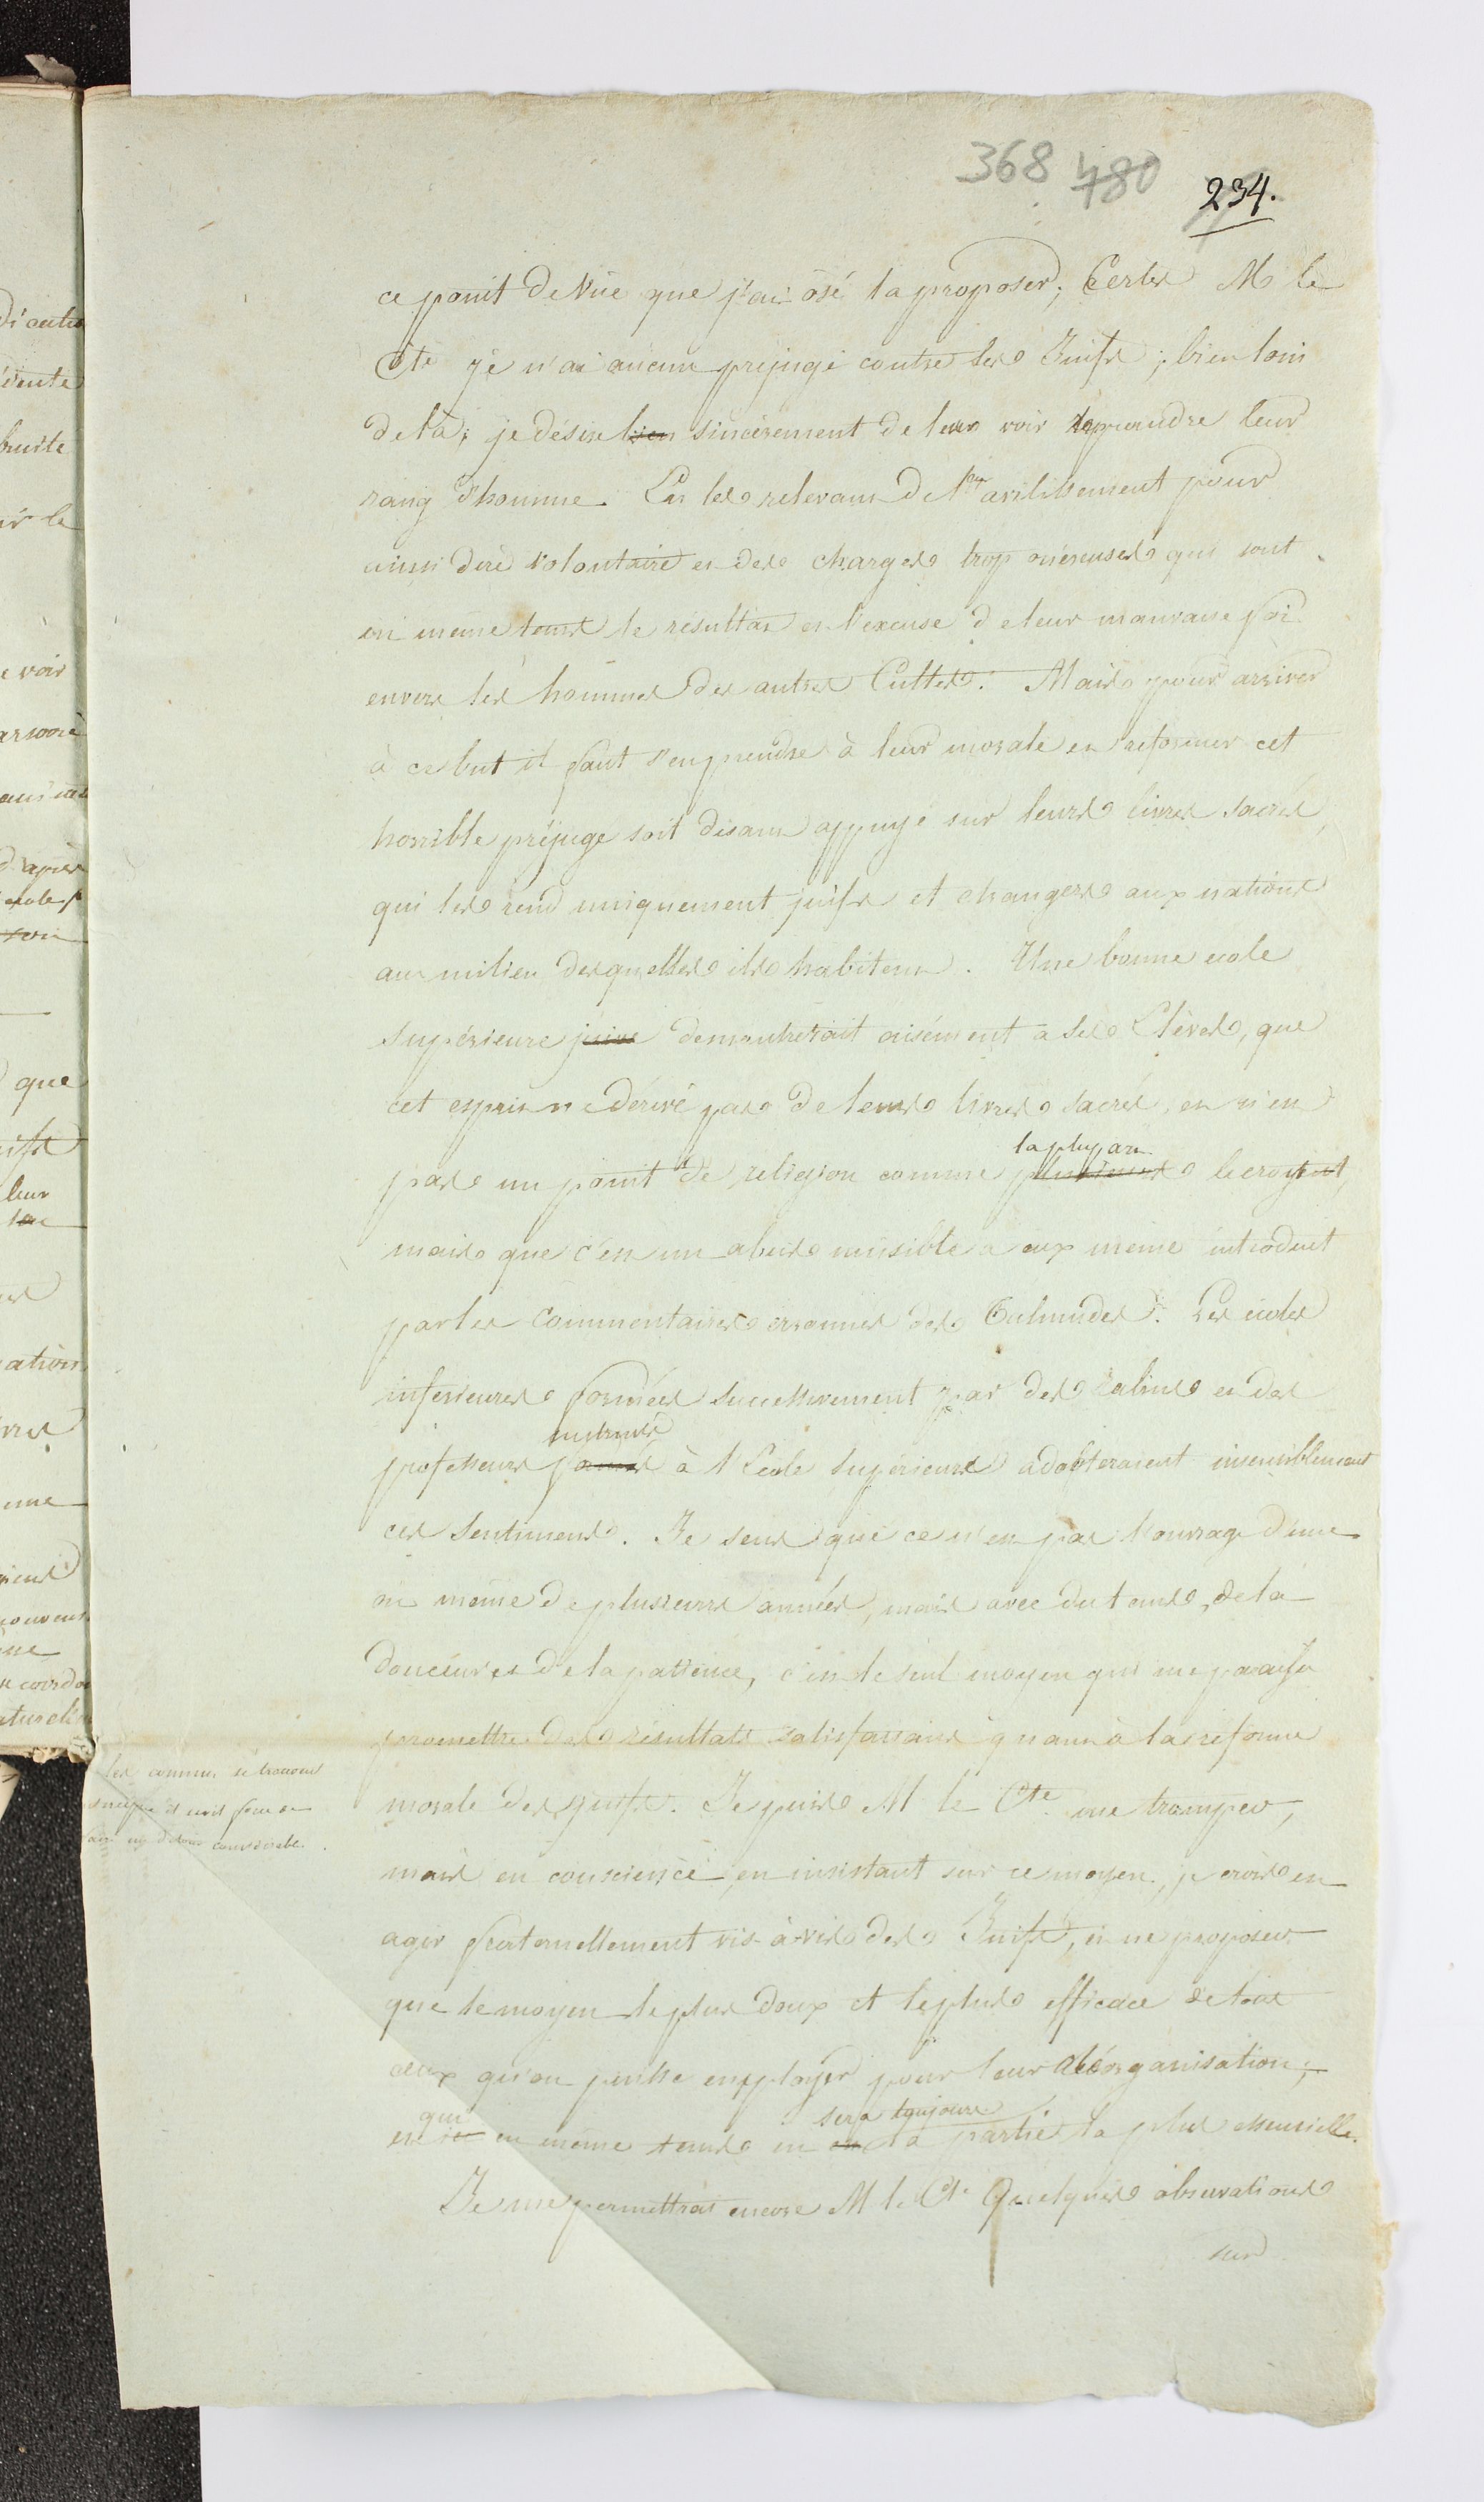 368 480 234.
ce point de vüe que j'ai osé la proposer; Certes M le
Cte je n'ai aucun préjugé contre les Juifs; bien loin
de là; je désire bien sincèrement de leur voir reprendre leur
rang d'homme. En les relevant de l' avilissement pour
ainsi dire volontaire et des charges trop onéreuses qui sont
en même tems le résultat et l'excuse de leur mauvaise foi
envers les hommes des autres Cultes. Mais pour arriver
à ce but il faut s'en prendre à leur morale et reformer cet
horrible préjugé soit disant appuyé sur leurs livres sacrés,
qui les rend uniquement juifs et etrangers aux nations
au milieu desquelles ils habitent. Une bonne ecole
supérieure juive demontrerait aisément a ses Elèves, que
cet esprit ne dérive pas de leurs livres sacrés, et n'est
la plupart
pas un point de religion comme plusieurs le croyent,
mais que c'est un abus nuisible à eux même introduit
par les Commentaires erronnés des Talmudes. Les ecoles
inferieures formées successivement par des rabins et des
instruits
professeurs formés à l'Ecole supérieure adopteraient insensiblement
ces sentimens. Je sens que ce n'est pas l'ouvrage d'une
ou même de plusieurs années, mais avec du tems, de la
douceur et de la patience, c'est le seul moyen qui me paraisse
promettre des résultats satisfaisans quant à la reforme
morale des juifs. Je puis M le Cte me tromper,
mais en conscience, en insistant sur ce moyen, je crois en
agir fraternellement vis-à-vis des Juifs, et ne proposer
que le moyen le plus doux et le plus efficace de tous
ceux qu'on puisse employer pour leur réorganisation;
qui sera toujours
en même tems en est la partie la plus essentielle.
Je me permettrai encore M le Cte Quelques observations
sur
les communes se trouvent